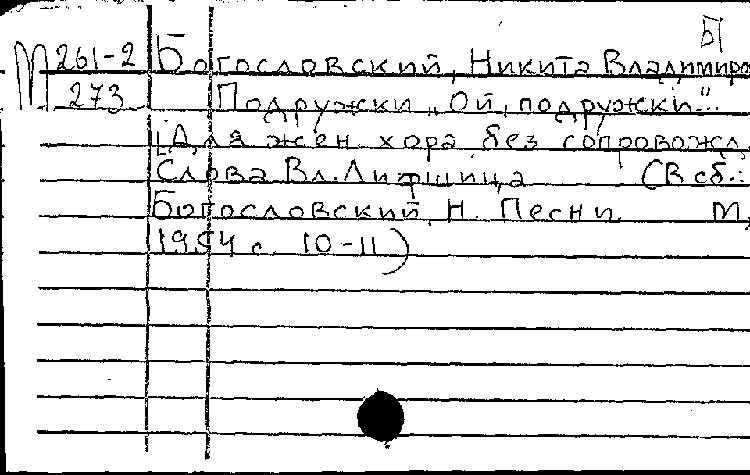 Б
М 261-2 Богословский, Никита Владимиро
273 Подружки „Ой, подружки"..
[Для жен хора без сопровожд.
Слова Вл. Лифшица (В сб.:
Богословский Н. Песни М.,
1954 с. 10-11)